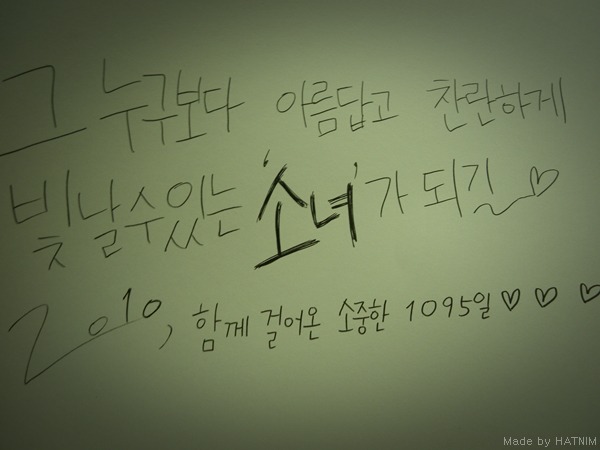 그 누구보다 아름답고 찬란하게
빛날수있는 '소녀'가 되길♡
2010, 함께 걸어온 소중한 1095일♡♡♡
Made by HATNIM